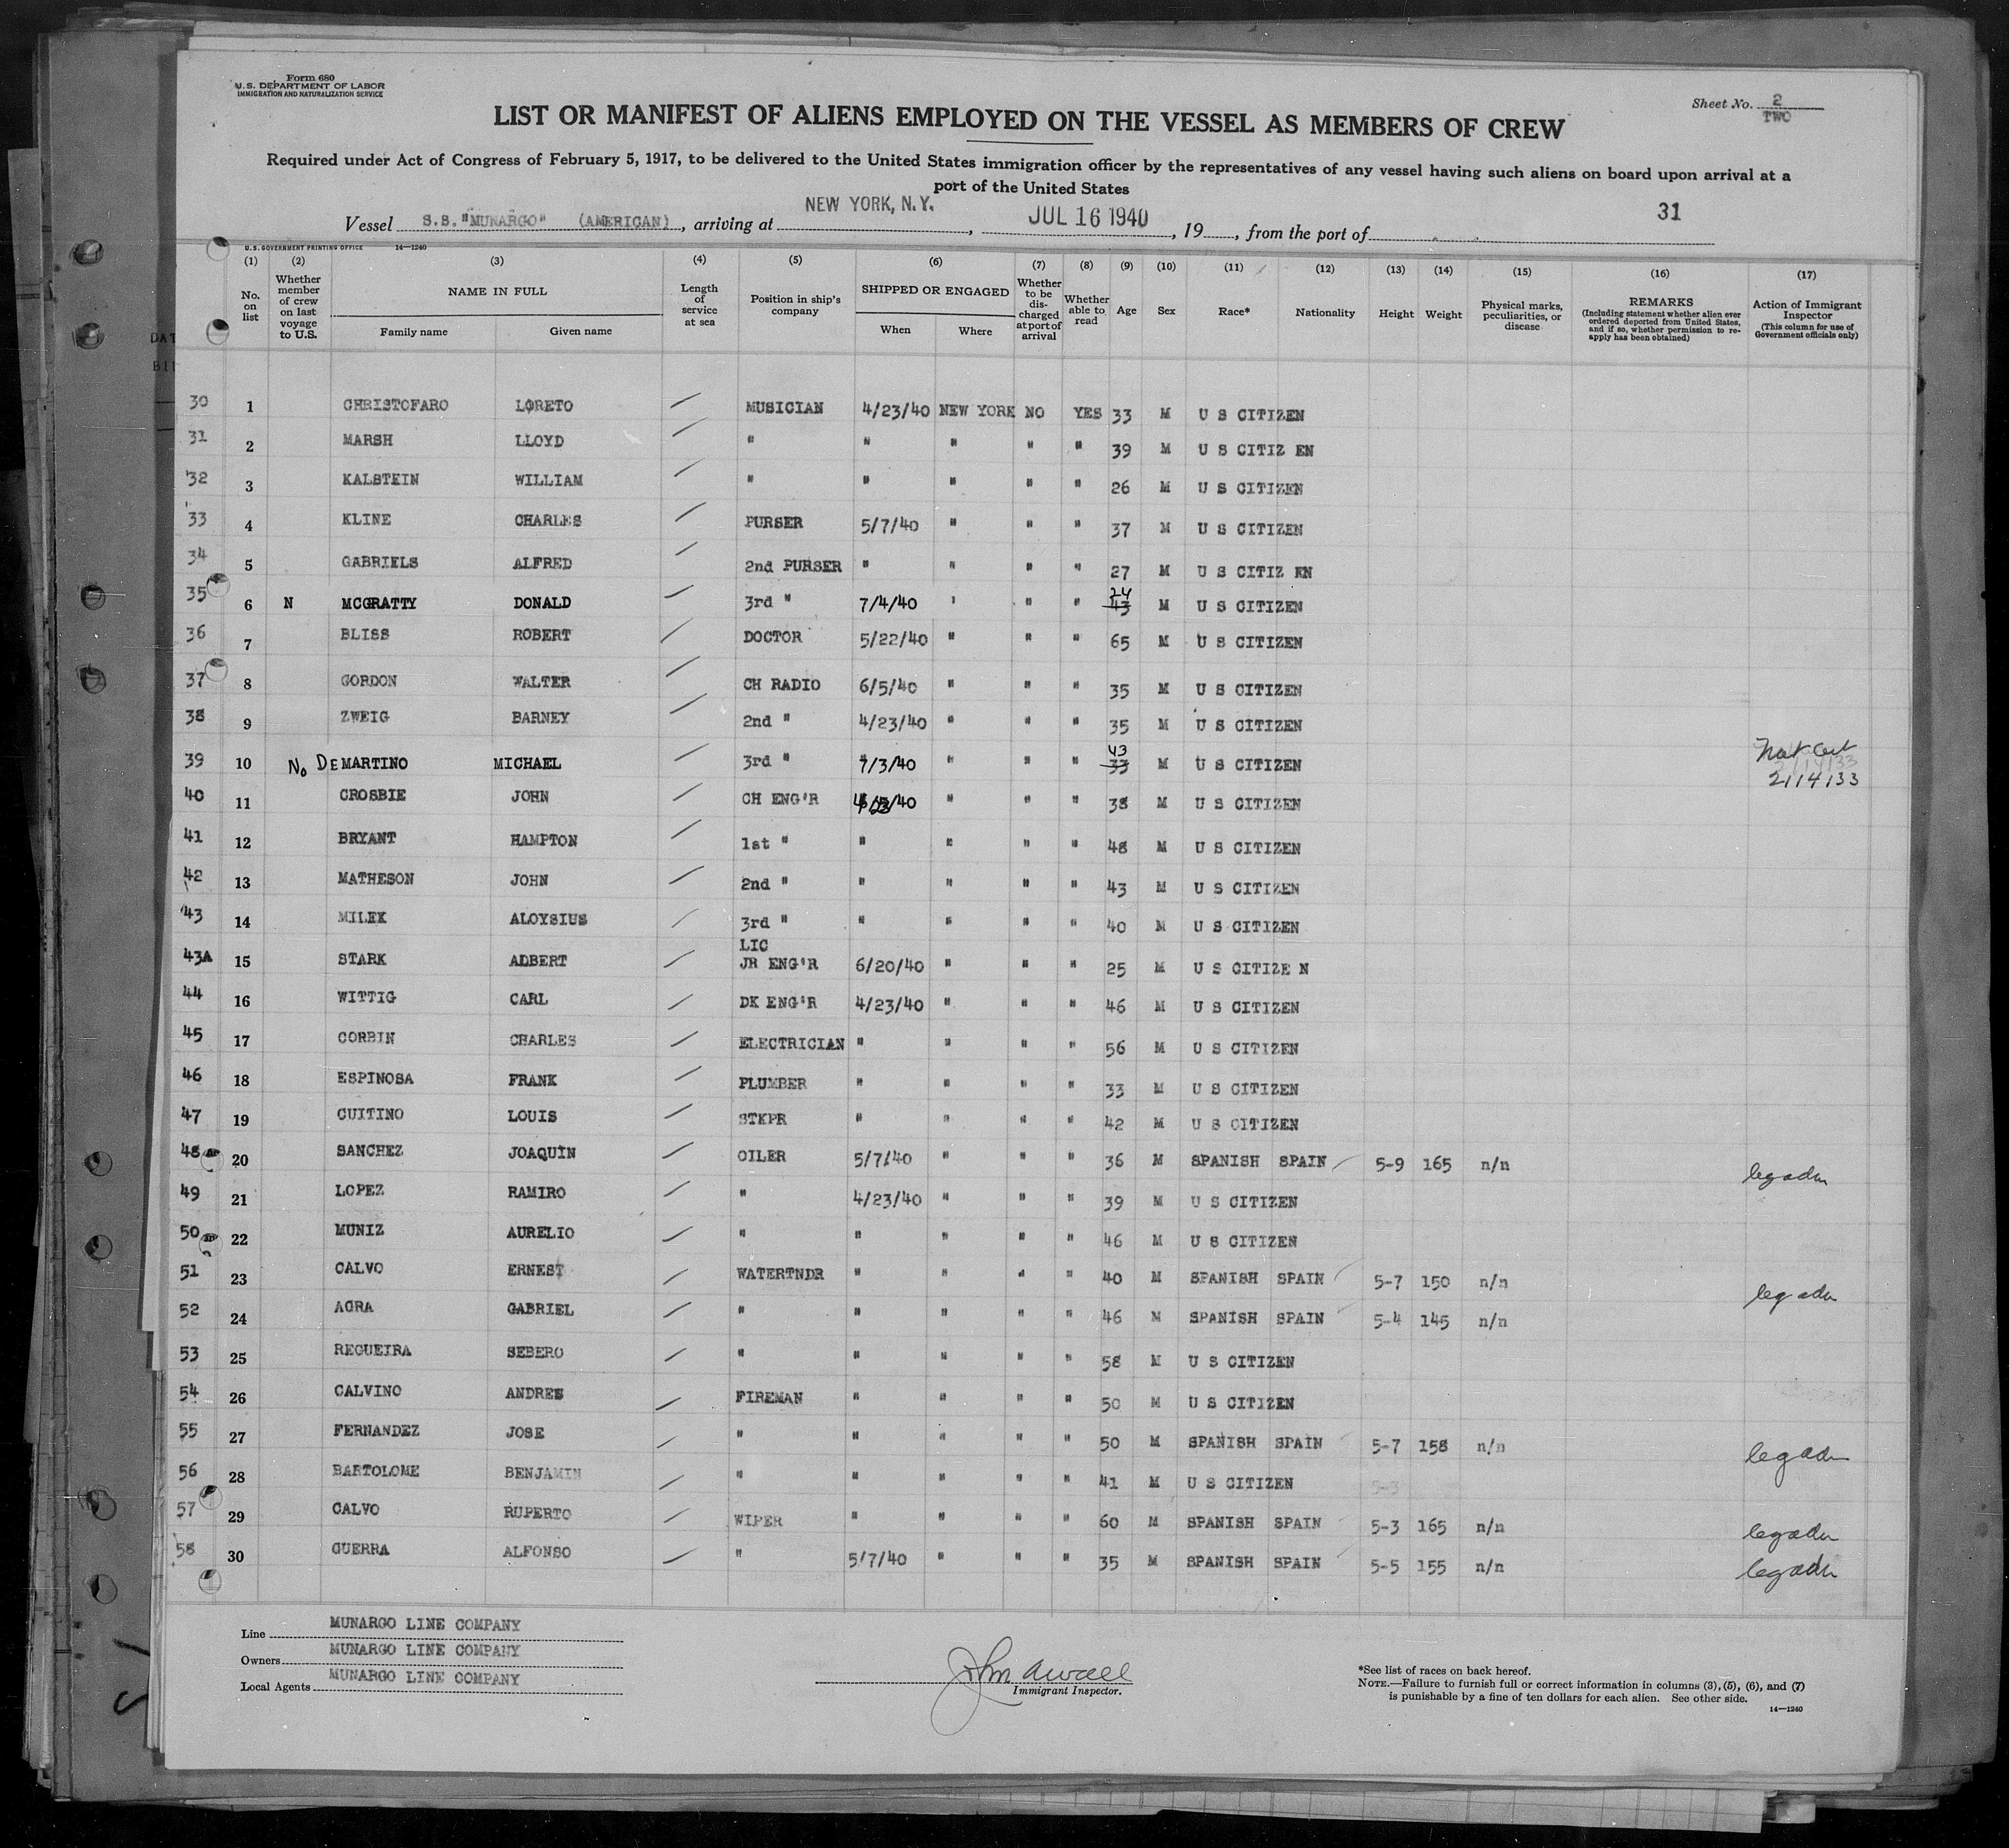 Form 680
U.S. DEPARTMENT OF LABOR
IMMIGRATION AND NATURALIZATION SERVICE
Sheet No. 2
TWO
LIST OR MANIFEST OF ALIENS EMPLOYED ON THE VESSEL AS MEMBERS OF CREW
Required under Act of Congress of February 5, 1917, to be delivered to the United States immigration officer by the representatives of any vessel having such aliens on board upon arrival at a
port of the United States
Vessel S.S. "MUNARGO" (AMERICAN), arriving at NEW YORK, N.Y., JUL 16 1940, 19, from the port of 31
U.S. GOVERNMENT PRINTING OFFICE 14—1240
(1) No. on list
(2) Whether member of crew on last voyage to U.S.
(3) NAME IN FULL
Family name Given name
(4) Length of service at sea
(5) Position in ship's company
(6) SHIPPED OR ENGAGED
When Where
(7) Whether to be discharged at port of arrival
(8) Whether able to read
(9) Age
(10) Sex
(11) Race*
(12) Nationality
(13) Height
(14) Weight
(15) Physical marks, peculiarities, or disease
(16) REMARKS (Including statement whether alien ever ordered deported from United States, and if so, whether permission to reapply has been obtained)
(17) Action of Immigrant Inspector (This column for use of Government officials only)
30 1 CHRISTOFARO LORETO MUSICIAN 4/23/40 NEW YORK NO YES 33 M U S CITIZEN
31 2 MARSH LLOYD " " " " " 39 M U S CITIZ EN
32 3 KALSTEIN WILLIAM " " " " " 26 M U S CITIZEN
33 4 KLINE CHARLES PURSER 5/7/40 " " " 37 M U S CITIZEN
34 5 GABRIELS ALFRED 2nd PURSER " " " " 27 M U S CITIZ EN
35 6 N MCGRATTY DONALD 3rd " 7/4/40 ' " " 24 43 M U S CITIZEN
36 7 BLISS ROBERT DOCTOR 5/22/40 " " " 65 M U S CITIZEN
37 8 GORDON WALTER CH RADIO 6/5/40 " " " 35 M U S CITIZEN
38 9 ZWEIG BARNEY 2nd " 4/23/40 " " " 35 M U S CITIZEN
39 10 No DEMARTINO MICHAEL 3rd " 7/3/40 " " " 43 33 M U S CITIZEN Nat Cert 2114133
40 11 CROSBIE JOHN CH ENG'R /40 " " " 38 M U S CITIZEN
41 12 BRYANT HAMPTON 1st " " " " " 48 M U S CITIZEN
42 13 MATHESON JOHN 2nd " " " " " 43 M U S CITIZEN
43 14 MILEK ALOYSIUS 3rd " " " " " 40 M U S CITIZEN
43A 15 STARK ALBERT LIC JR ENG'R 6/20/40 " " " 25 M U S CITIZE N
44 16 WITTIG CARL DK ENG'R 4/23/40 " " " 46 M U S CITIZEN
45 17 CORBIN CHARLES ELECTRICIAN " " " " 56 M U S CITIZEN
46 18 ESPINOSA FRANK PLUMBER " " " " 33 M U S CITIZEN
47 19 CUITINO LOUIS STKPR " " " " 42 M U S CITIZEN
48 20 SANCHEZ JOAQUIN OILER 5/7/40 " " " 36 M SPANISH SPAIN 5-9 165 n/n
49 21 LOPEZ RAMIRO " 4/23/40 " " " 39 M U S CITIZEN
50 22 MUNIZ AURELIO " " " " " 46 M U S CITIZEN
51 23 CALVO ERNEST WATERTNDR " " " " 40 M SPANISH SPAIN 5-7 150 n/n
52 24 AGRA GABRIEL " " " " " 46 M SPANISH SPAIN 5-4 145 n/n
53 25 REGUEIRA SEBERO " " " " " 58 M U S CITIZEN
54 26 CALVINO ANDRES FIREMAN " " " " 50 M U S CITIZEN
55 27 FERNANDEZ JOSE " " " " " 50 M SPANISH SPAIN 5-7 158 n/n
56 28 BARTOLOME BENJAMIN " " " " " 41 M U S CITIZEN
57 29 CALVO RUPERTO WIPER " " " " 60 M SPANISH SPAIN 5-3 165 n/n
58 30 GUERRA ALFONSO " 5/7/40 " " " 35 M SPANISH SPAIN 5-5 155 n/n
Line MUNARGO LINE COMPANY
Owners MUNARGO LINE COMPANY
Local Agents MUNARGO LINE COMPANY
Immigrant Inspector.
*See list of races on back hereof.
NOTE.—Failure to furnish full or correct information in columns (3), (5), (6), and (7)
is punishable by a fine of ten dollars for each alien. See other side.
14—1240